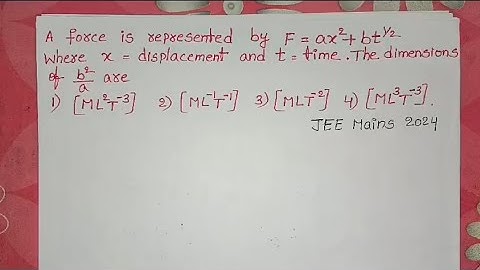 A force is represented by F = ax² + bt^1/2
Where x = displacement and t = time. The dimensions
of b²/a are
1) [ML²T⁻³] 2) [ML⁻¹T⁻¹] 3) [MLT⁻²] 4) [ML³T⁻³].
JEE Mains 2024